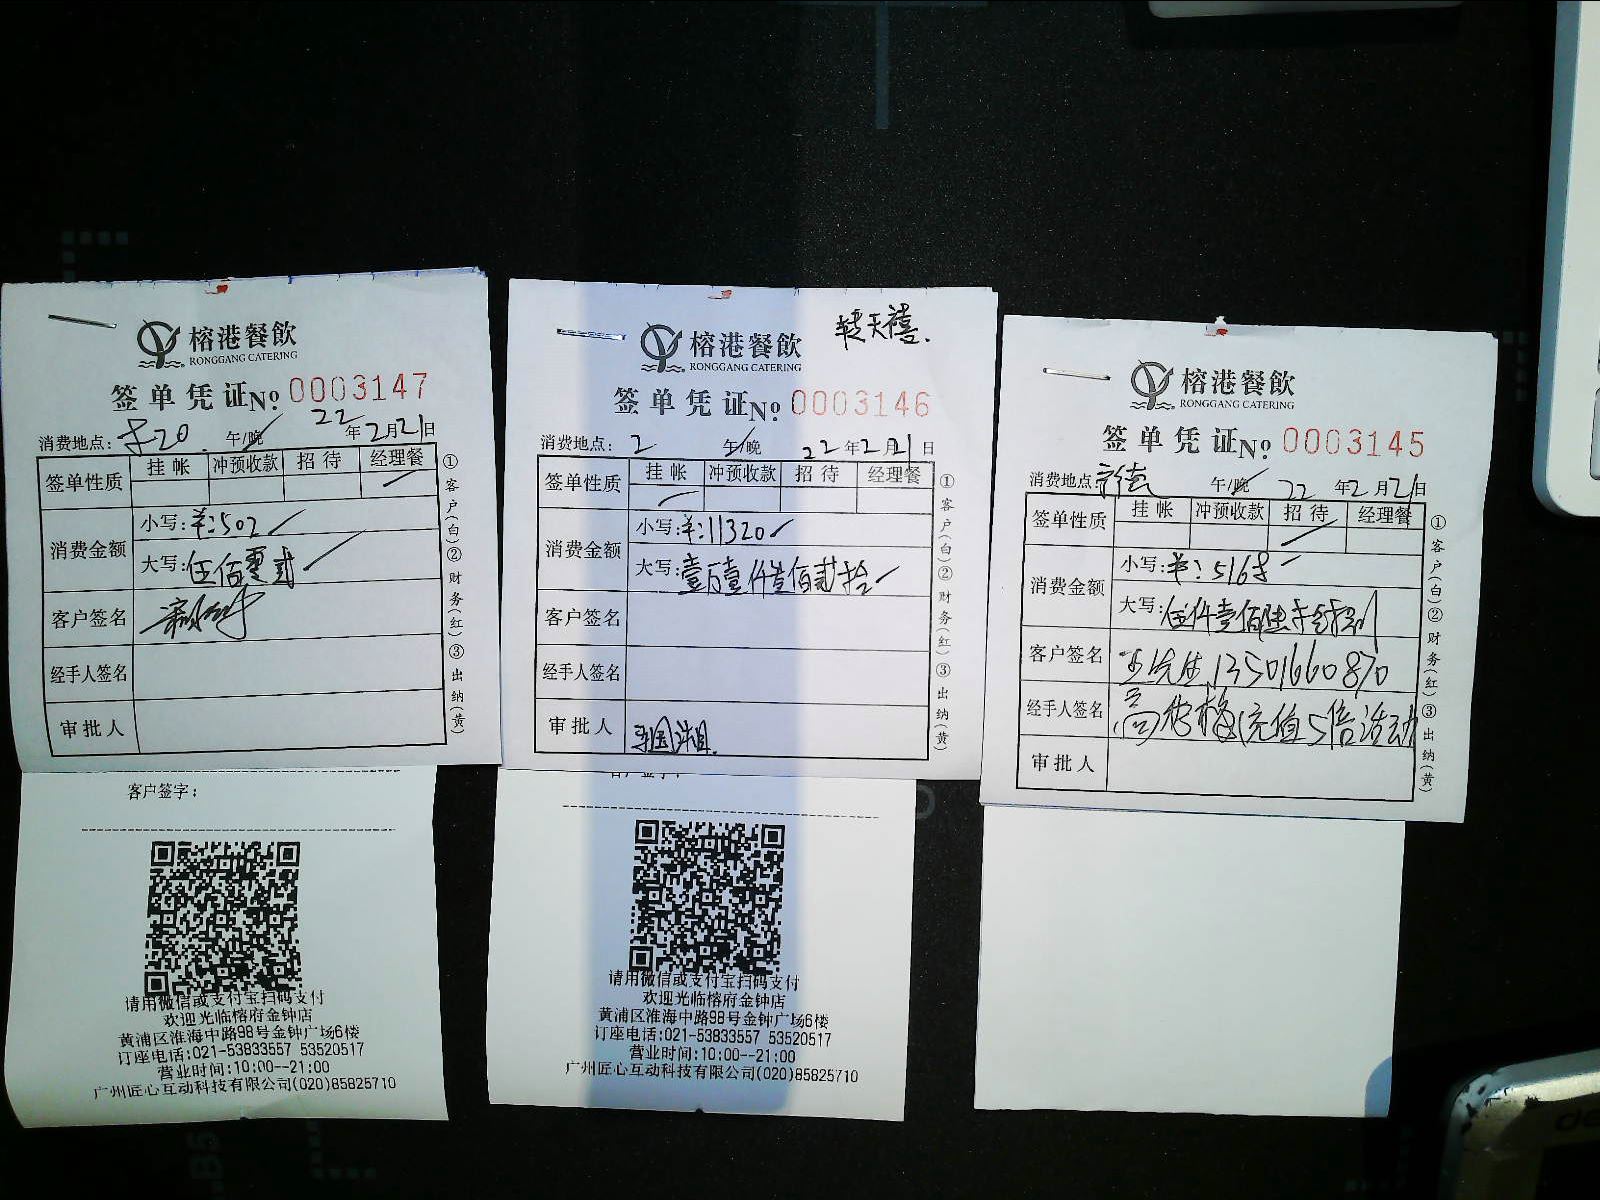 榕港餐飲
RONGGANG CATERING
签单凭证No 0003147
消费地点: 午/晚 22年2月21日
签单性质 挂帐 冲预收款 招待 经理餐
消费金额 小写:¥:502
大写:伍佰零贰
客户签名
经手人签名
审批人
①客户(白)②财务(红)③出纳(黄)
客户签字:
请用微信或支付宝扫码支付
欢迎光临榕府金钟店
黄浦区淮海中路98号金钟广场6楼
订座电话:021-53833557 53520517
营业时间:10:00--21:00
广州匠心互动科技有限公司(020)85825710
转天禧.
榕港餐飲
RONGGANG CATERING
签单凭证No 0003146
消费地点: 2 午/晚 22年2月21日
签单性质 挂帐 冲预收款 招待 经理餐
消费金额 小写:¥:11320
大写:壹万壹仟叁佰贰拾
客户签名
经手人签名
审批人
①客户(白)②财务(红)③出纳(黄)
请用微信或支付宝扫码支付
欢迎光临榕府金钟店
黄浦区淮海中路98号金钟广场6楼
订座电话:021-53833557 53520517
营业时间:10:00--21:00
广州匠心互动科技有限公司(020)85825710
榕港餐飲
RONGGANG CATERING
签单凭证No 0003145
消费地点: 午/晚 22年2月21日
签单性质 挂帐 冲预收款 招待 经理餐
消费金额 小写:¥:5168
大写:伍仟壹佰陆拾捌
客户签名 王先生 13501660870
经手人签名 (充值5倍活动
审批人
①客户(白)②财务(红)③出纳(黄)